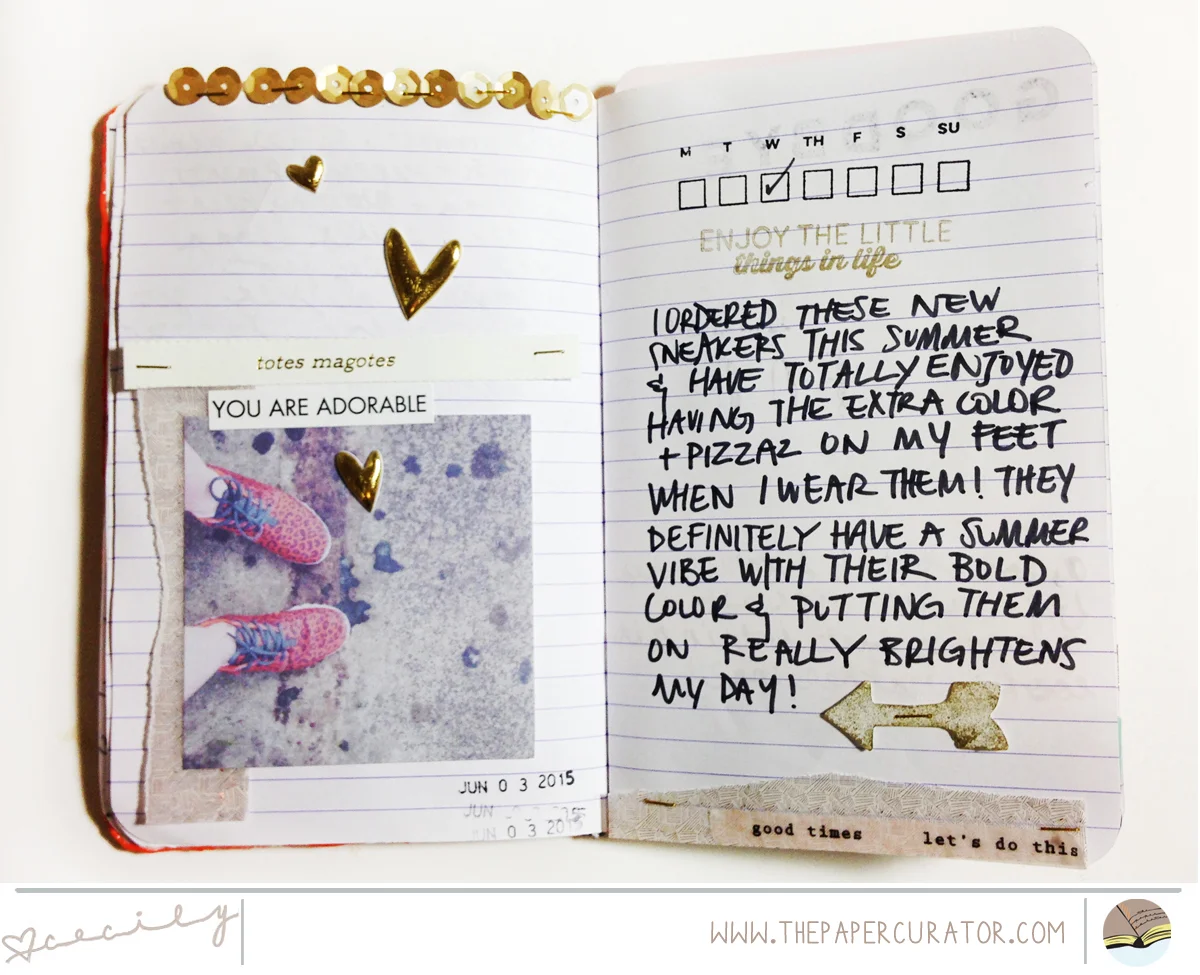 totes magotes
YOU ARE ADORABLE
JUN 0 3 2015
JUN 0 3 2015
JUN 0 3 2015
GOOD
M T W TH F S SU
ENJOY THE LITTLE
things in life
I ORDERED THESE NEW
SNEAKERS THIS SUMMER
& HAVE TOTALLY ENJOYED
HAVING THE EXTRA COLOR
+ PIZZAZ ON MY FEET
WHEN I WEAR THEM! THEY
DEFINITELY HAVE A SUMMER
VIBE WITH THEIR BOLD
COLOR & PUTTING THEM
ON REALLY BRIGHTENS
MY DAY!
good times
let's do this
cecily
WWW.THEPAPERCURATOR.COM